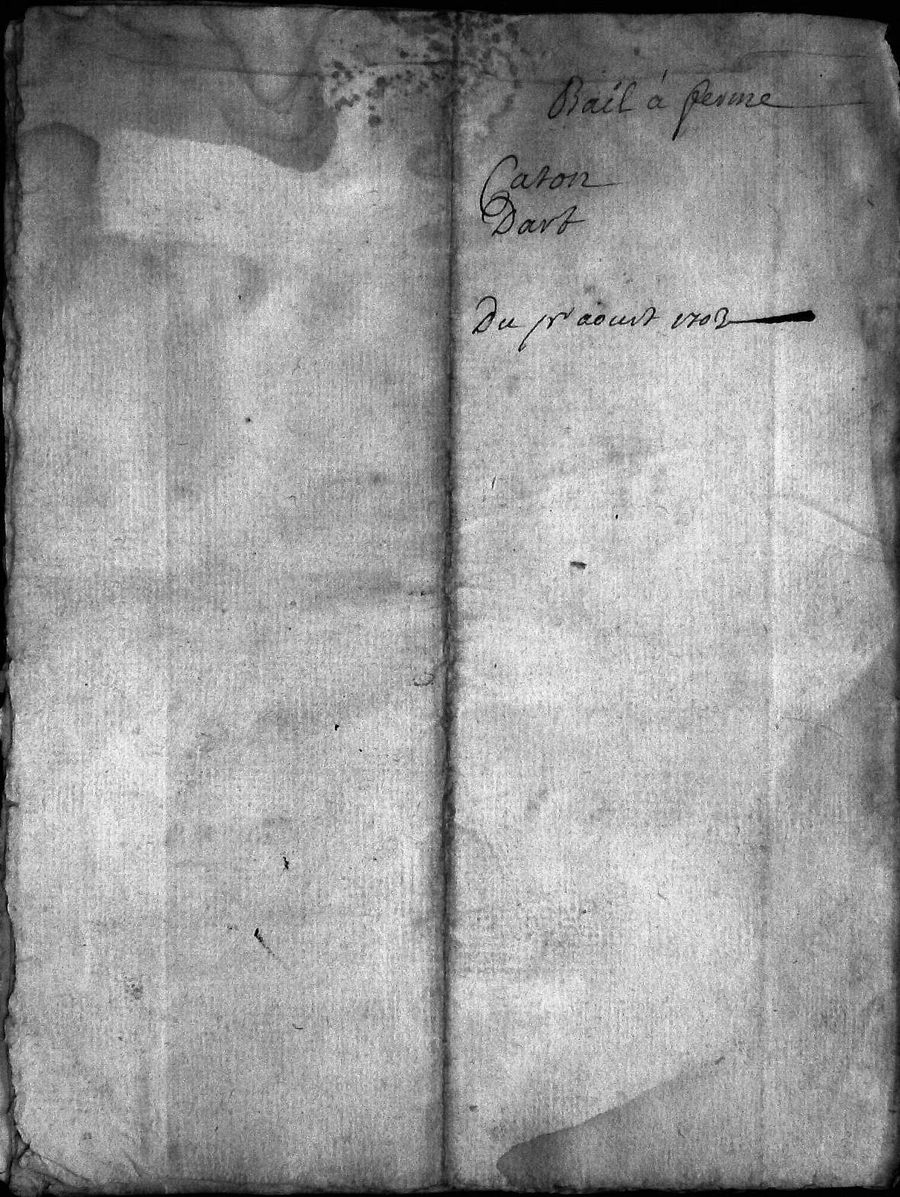 Bail à ferme
Caton
Dart
Du pr aoust 1703